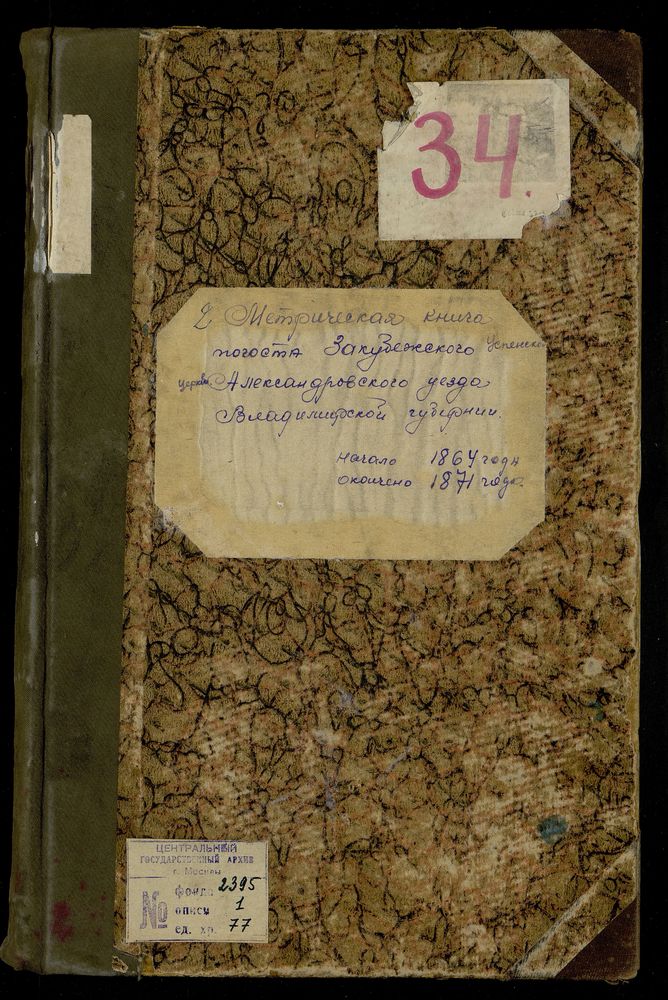 34.
2 Метрическая книга
погоста Закубежского Успенской
церкви Александровского уезда
Владимирской губернии.
начало 1864 года
окончено 1871 года.
ЦЕНТРАЛЬНЫЙ
ГОСУДАРСТВЕННЫЙ АРХИВ
г. Москвы
фонд 2395
№ описи 1
ед. хр. 77